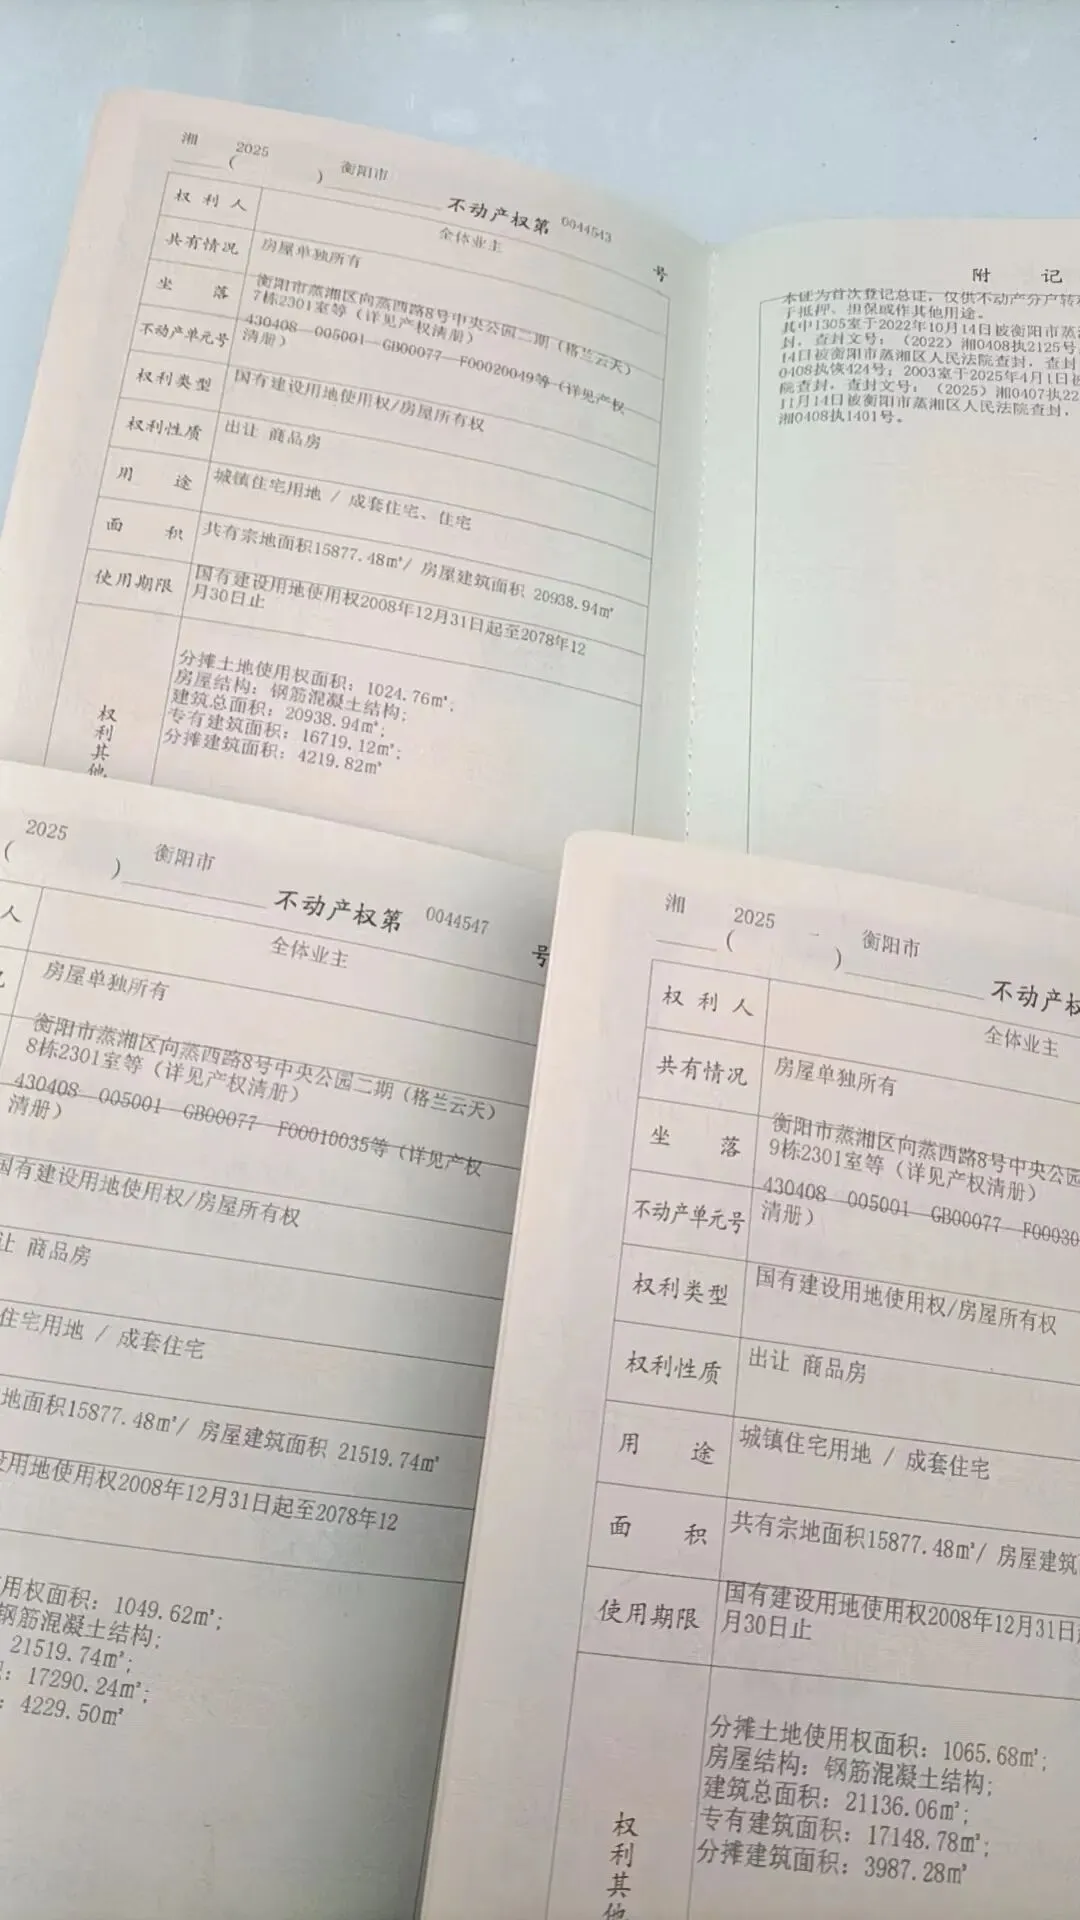 湘 ( 2025 ) 衡阳市 不动产权第 0044543 号
权利人 全体业主
共有情况 房屋单独所有
坐落 衡阳市蒸湘区向蒸西路8号中央公园二期（格兰云天）
7栋2301室等（详见产权清册）
不动产单元号 430408 005001 GB00077 F00020049等（详见产权
清册）
权利类型 国有建设用地使用权/房屋所有权
权利性质 出让 商品房
用途 城镇住宅用地 / 成套住宅、住宅
面积 共有宗地面积15877.48㎡/ 房屋建筑面积 20938.94㎡
使用期限 国有建设用地使用权2008年12月31日起至2078年12
月30日止
权利其他
分摊土地使用权面积：1024.76㎡;
房屋结构：钢筋混凝土结构;
建筑总面积：20938.94㎡;
专有建筑面积：16719.12㎡;
分摊建筑面积：4219.82㎡
附记
本证为首次登记总证，仅供不动产分户转移
于抵押、担保或作其他用途。
其中1305室于2022年10月14日被衡阳市蒸
封，查封文号：（2022）湘0408执2125号
14日被衡阳市蒸湘区人民法院查封，查封
0408执恢424号；2003室于2025年4月1日被
院查封，查封文号：（2025）湘0407执22
11月14日被衡阳市蒸湘区人民法院查封，
湘0408执1401号。
( 2025 ) 衡阳市 不动产权第 0044547 号
人 全体业主
房屋单独所有
衡阳市蒸湘区向蒸西路8号中央公园二期（格兰云天）
8栋2301室等（详见产权清册）
430408 005001 GB00077 F00010035等（详见产权
清册）
国有建设用地使用权/房屋所有权
让 商品房
住宅用地 / 成套住宅
地面积15877.48㎡/ 房屋建筑面积 21519.74㎡
用地使用权2008年12月31日起至2078年12
用权面积：1049.62㎡;
钢筋混凝土结构;
21519.74㎡;
：17290.24㎡;
：4229.50㎡
湘 ( 2025 ) 衡阳市 不动产权
权利人 全体业主
共有情况 房屋单独所有
坐落 衡阳市蒸湘区向蒸西路8号中央公园
9栋2301室等（详见产权清册）
不动产单元号 430408 005001 GB00077 F00030
清册）
权利类型 国有建设用地使用权/房屋所有权
权利性质 出让 商品房
用途 城镇住宅用地 / 成套住宅
面积 共有宗地面积15877.48㎡/ 房屋建筑
使用期限 国有建设用地使用权2008年12月31日
月30日止
权利其他
分摊土地使用权面积：1065.68㎡;
房屋结构：钢筋混凝土结构;
建筑总面积：21136.06㎡;
专有建筑面积：17148.78㎡;
分摊建筑面积：3987.28㎡